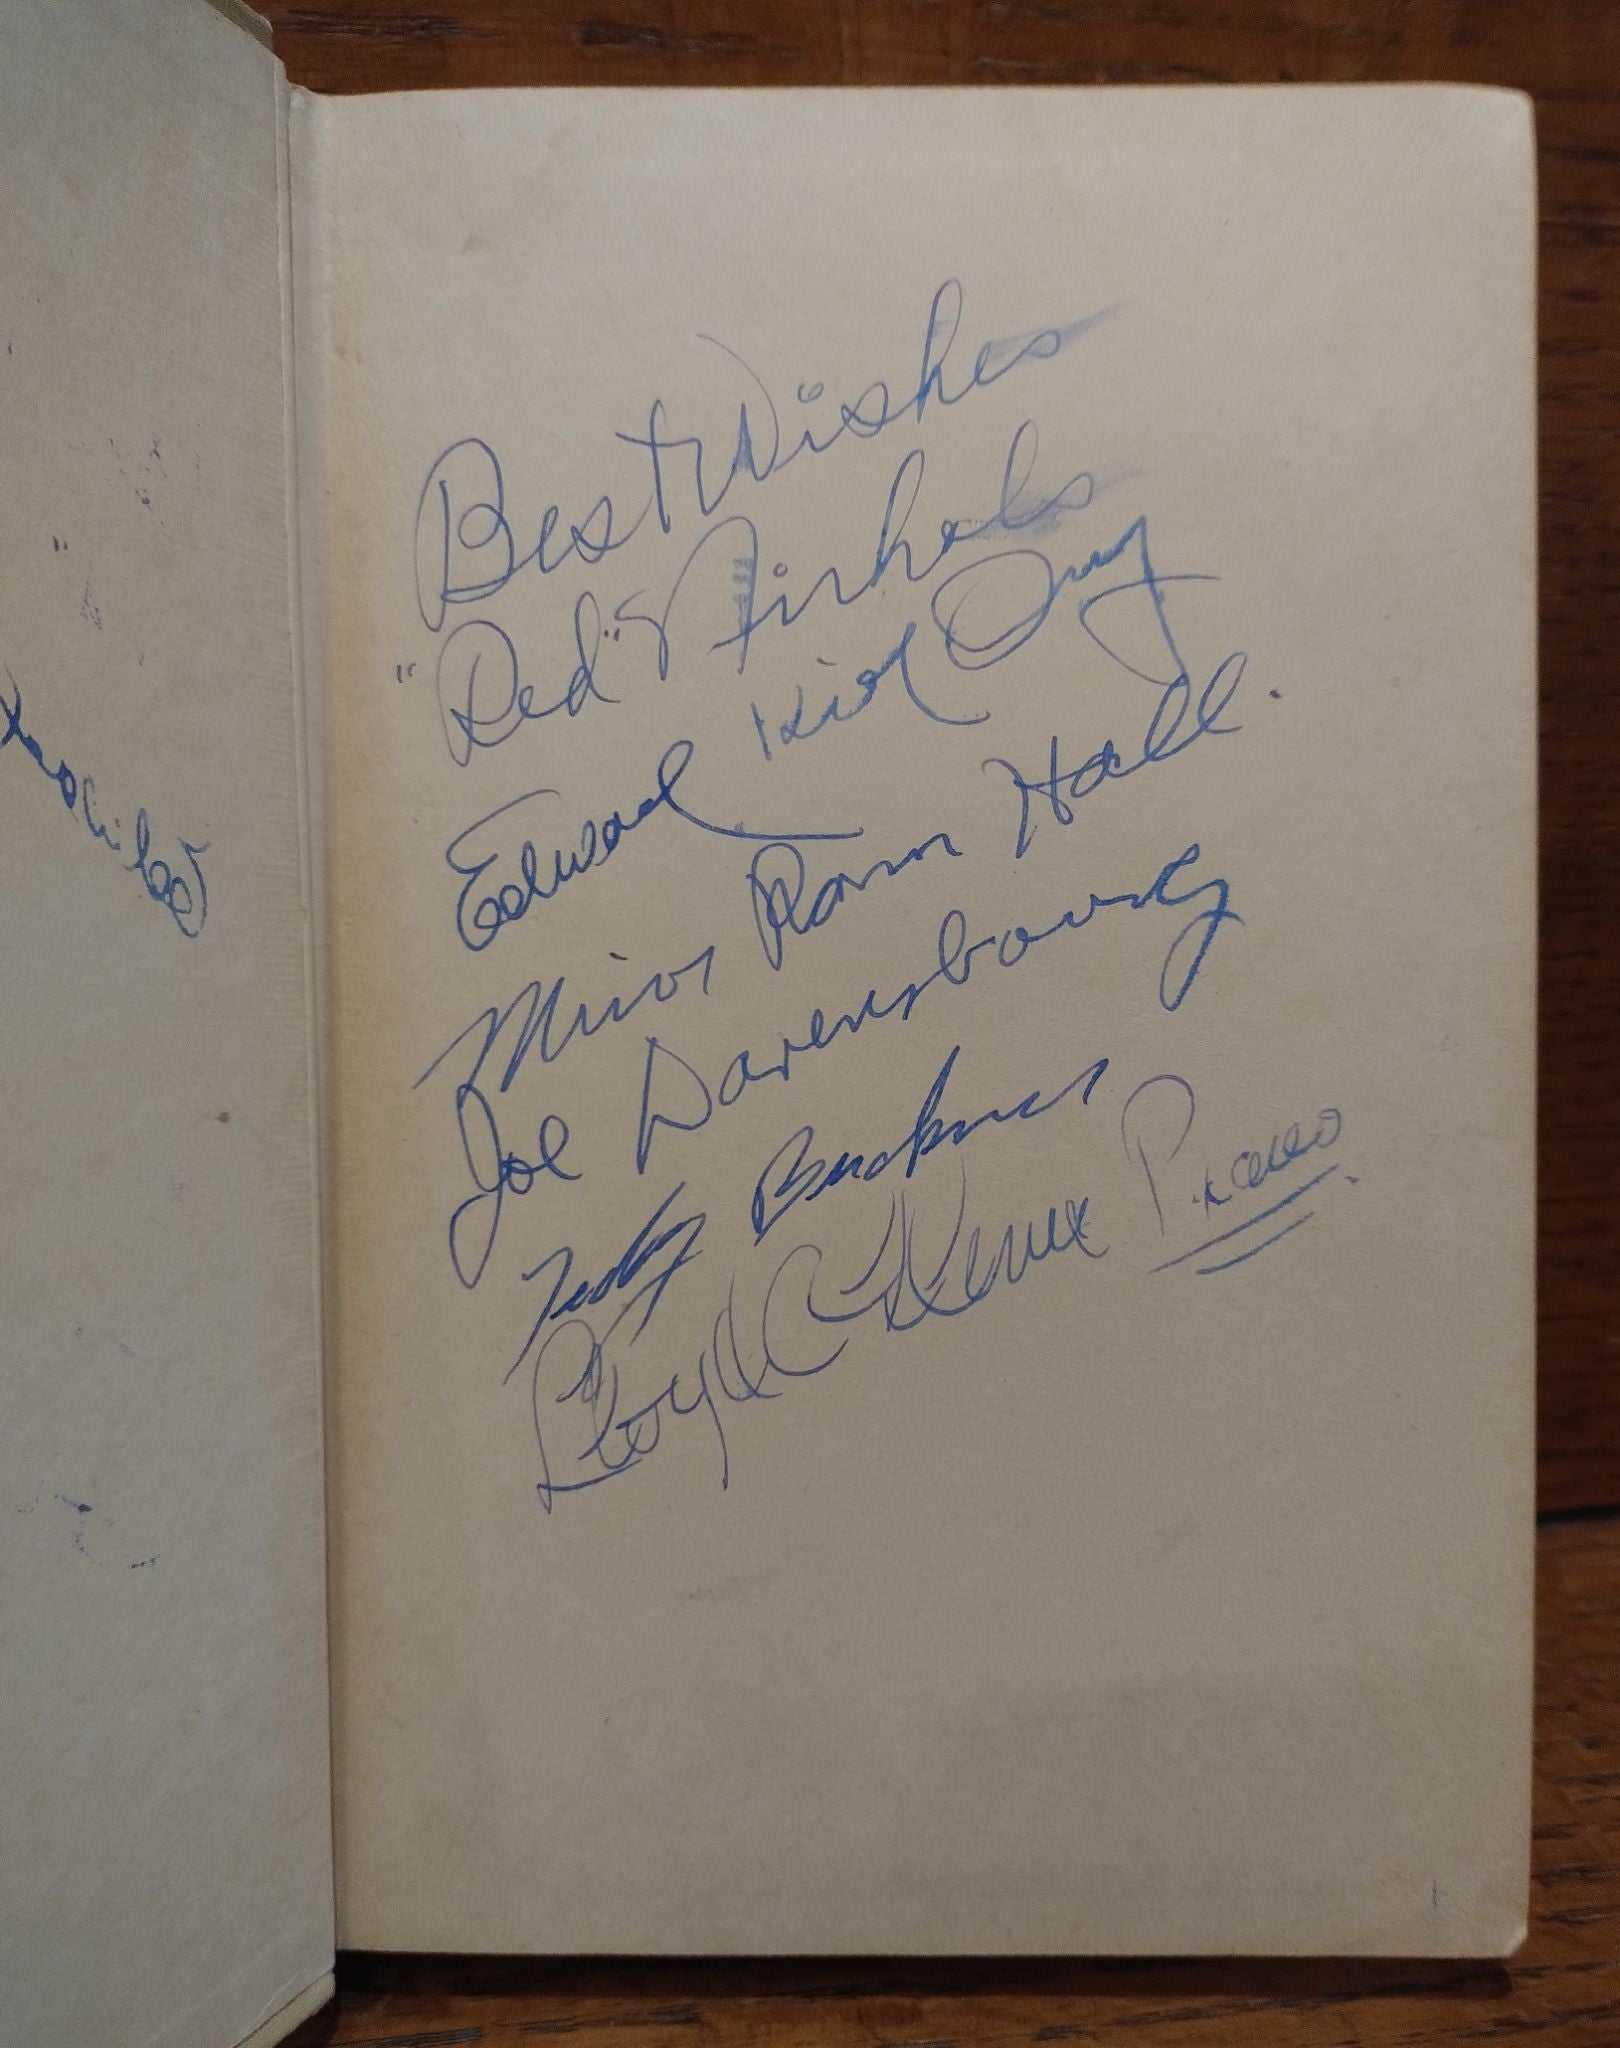 Best Wishes
"Red" Nichols
Edward Kid Ory
Minor Ram Hall.
Joe Darensbourg
Teddy Buckner
Lloyd C Glenn Piano